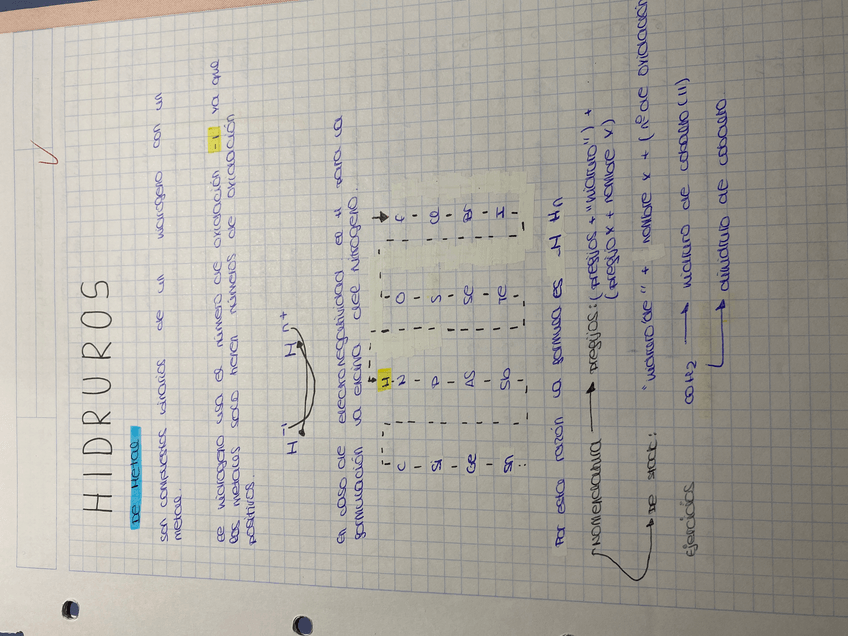 HIDRUROS
DE METAL
son compuestos binarios de un hidrógeno con un
metal.
el hidrogeno usa el número de oxidación -1 ya que
los metales solo tienen números de oxidación
positivos.
H⁻¹ H n+
en caso de electronegatividad el H para la
formulación va encima del nitrógeno.
H
C - N - O - F
Si - P - S - Cl
Ge - As - Se - Br
Sn - Sb - Te - I
Por esta razón la formula es -M Hn
Nomenclatura → prefijos: (prefijos + "hidruro") +
(prefijo x + nombre x)
→ De stock: "hidruro de" + nombre x + (nº de oxidación
ejercicios
CoH2 → hidruro de cobalto (II)
→ dihidruro de cobalto.